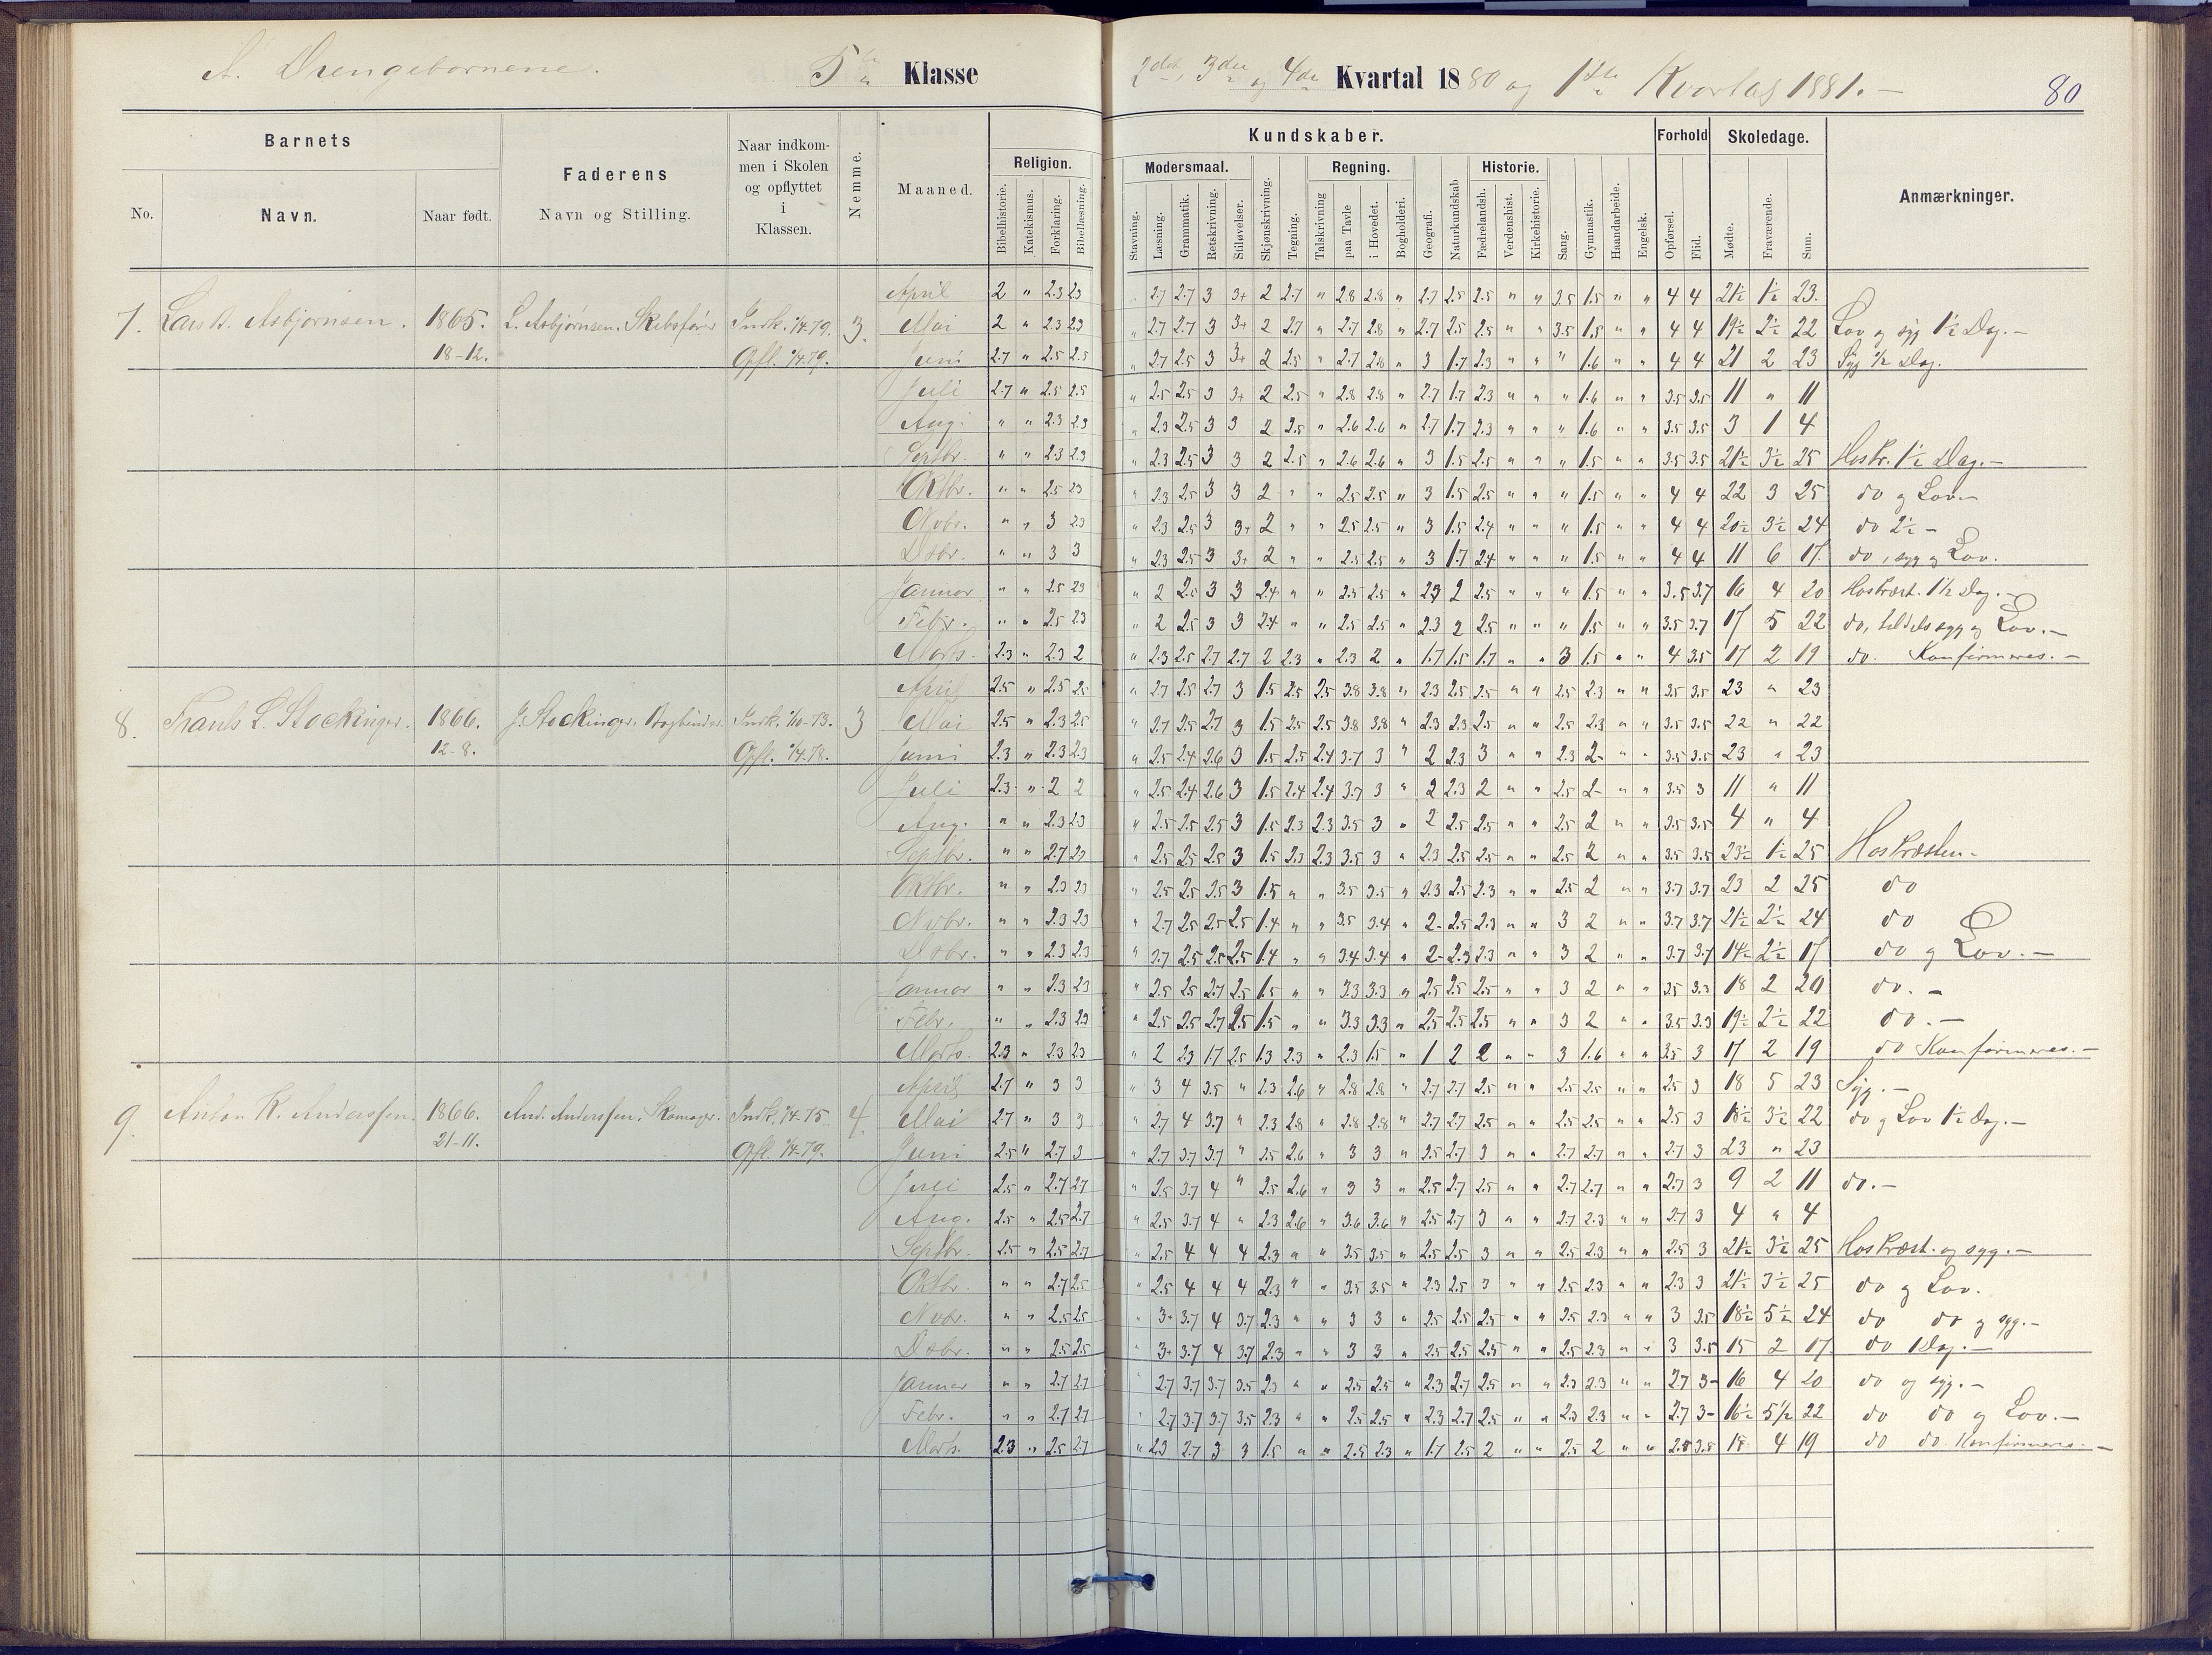 A. Drengebørnene. 5te Klasse 2det, 3die og 4de Kvartal 1880 og 1ste Kvartal 1881. —
80
Barnets Faderens Naar indkommen i Skolen og opflyttet i Klassen. Nemme. Maaned. Kundskaber. Forhold Skoledage. Anmærkninger.
No. Navn. Naar født. Navn og Stilling.
Religion. Modersmaal. Regning. Historie.
Bibelhistorie. Katekismus. Forklaring. Bibellæsning. Stavning. Læsning. Grammatik. Retskrivning. Stiløvelser. Skjønskrivning. Tegning. Talskrivning paa Tavle i Hovedet. Bogholderi. Geografi. Naturkundskab Fædrelandsh. Verdenshist. Kirkehistorie. Sang. Gymnastik. Haandarbeide. Engelsk. Opførsel. Flid. Mødte. Fraværende. Sum.
April 2 " 2.3 2.3 " 2.7 2.7 3 3+ 2 2.7 " 2.8 2.8 " 2.7 2.5 2.5 " " 3.5 1.5 " " 4 4 21½ 1½ 23.
7. Lars A. Asbjørnsen. 1865. L. Asbjørnsen, Skibsfører Indk. 1/4 79. 3. Mai 2 " 2.3 2.3 " 2.7 2.7 3 3+ 2 2.7 " 2.7 2.8 " 2.7 2.5 2.5 " " 3.5 1.5 " " 4 4 19½ 2½ 22 Lov og syg 1½ Dag. —
18-12. Opfl. 1/4 79. Juni 2.7 " 2.5 2.5 " 2.7 2.5 3 3+ 2 2.5 " 2.7 2.8 " 3 1.7 2.3 " " " 1.6 " " 4 4 21 2 23 Syg ½ Dag.
Juli 2.7 " 2.5 2.5 " 2.5 2.5 3 3+ 2 2.5 " 2.8 2.8 " 2.7 1.7 2.3 " " " 1.6 " " 3.5 3.5 11 " 11
Aug. " " 2.3 2.3 " 2.3 2.5 3 3 2 2.5 " 2.6 2.6 " 2.7 1.7 2.3 " " " 1.6 " " 3.5 3.5 3 1 4
Septbr. " " 2.3 2.3 " 2.3 2.5 3 3 2 2.5 " 2.6 2.6 " 3 1.5 2.5 " " " 1.5 " " 3.5 3.5 21½ 3½ 25 Hos Pr. 1½ Dag. —
Oktbr. " " 2.5 2.3 " 2.3 2.5 3 3 2 " " 2.5 2.5 " 3 1.5 2.5 " " " 1.5 " " 4 4 22 3 25 do og Lov. —
Novbr. " " 3 2.3 " 2.3 2.5 3 3+ 2 " " 2.5 2.5 " 3 1.5 2.4 " " " 1.5 " " 4 4 20½ 3½ 24 do 2½ —
Dsbr. " " 3 3 " 2.3 2.5 3 3+ 2 " " 2.5 2.5 " 3 1.7 2.4 " " " 1.5 " " 4 4 11 6 17 do, syg og Lov.
Januar " " 2.5 2.3 " 2 2.5 3 3 2.4 " " 2.5 2.5 " 2.3 2 2.5 " " " 1.5 " " 3.5 3.7 16 4 20 Hos Præst. 1½ Dag. —
Febr. " " 2.5 2.3 " 2 2.5 3 3 2.4 " " 2.5 2.5 " 2.3 2 2.5 " " " 1.5 " " 3.5 3.7 17 5 22 do, tildels syg og Lov. —
Marts. 2.3 " 2.3 2 " 2.3 2.5 2.7 2.7 2 2.3 " 2.3 2 " 1.7 1.5 1.7 " " 3 1.5 " " 4 3.5 17 2 19 do. Konfirmeres. —
April 2.5 " 2.5 2.5 " 2.7 2.5 2.7 3 1.5 2.5 2.5 3.8 3.8 " 2.3 2.5 2.5 " " 2.5 2.3 " " 3.5 3.5 23 " 23
8. Frants L. Stockinger. 1866. J. Stockinger, Bogbinder. Indk. 1/10-73. 3 Mai 2.5 " 2.3 2.5 " 2.7 2.5 2.7 3 1.5 2.5 2.5 3.8 3.8 " 2.3 2.3 2.5 " " 2.5 2.3 " " 3.5 3.5 22 " 22
12-8. Opfl. 1/4-78. Juni 2.3 " 2.3 2.3 " 2.5 2.4 2.6 3 1.5 2.5 2.4 3.7 3 " 2 2.3 3 " " 2.3 2- " " 3.5 3.5 23 " 23
Juli 2.3 " 2 2 " 2.5 2.4 2.6 3 1.5 2.4 2.4 3.7 3 " 2 2.3 2 " " 2.5 2- " " 3.5 3 11 " 11
Aug. " " 2.3 2.3 " 2.5 2.5 2.5 3 1.5 2.3 2.3 3.5 3 " 2 2.5 2.5 " " 2.5 2 " " 3.5 3.5 4 " 4
Septbr. " " 2.7 2.3 " 2.5 2.5 2.5 3 1.5 2.3 2.3 3.5 3 " 2.3 2.5 2.5 " " 2.5 2 " " 3.5 3.5 23½ 1½ 25 Hos Præsten —
Oktbr. " " 2.3 2.3 " 2.5 2.5 2.5 3 1.5 " " 3.5 3.5 " 2.3 2.5 2.3 " " 2.5 2 " " 3.7 3.7 23 2 25 do
Novbr. " " 2.3 2.3 " 2.7 2.5 2.5 2.5 1.4 " " 3.5 3.4 " 2- 2.5 2.3 " " 3 2 " " 3.7 3.7 21½ 2½ 24 do
Dsbr. " " 2.3 2.3 " 2.7 2.5 2.5 2.5 1.4 " " 3.4 3.4 " 2- 2.3 2.3 " " 3 2 " " 3.7 3.7 14½ 2½ 17 do og Lov. —
Januar " " 2.3 2.3 " 2.5 2.5 2.7 2.5 1.5 " " 3.3 3.3 " 2.5 2.5 2.5 " " 3 2 " " 3.5 3.3 18 2 20 do. —
Febr. " " 2.3 2.3 " 2.5 2.5 2.7 2.5 1.5 " " 3.3 3.3 " 2.5 2.5 2.5 " " 3 2 " " 3.5 3.3 19½ 2½ 22 do. —
Marts. 2.3 " 2.3 2.3 " 2 2.3 1.7 2.5 1.3 2.3 " 2.3 1.5 " 1 2 2 " " 3 1.6 " " 3.5 3 17 2 19 do Konfirmeres. —
April 2.7 " 3 3 " 3 4 3.5 " 2.3 2.6 " 2.8 2.8 " 2.7 2.7 2.5 " " 2.5 2.5 " " 2.5 3 18 5 23 Syg. —
9. Anton K. Anderssen. 1866. And. Anderssen, Skomager. Indk. 1/4-75. 4. Mai 2.7 " 3 3 " 2.7 4 3.7 " 2.3 2.8 " 2.8 2.8 " 2.7 2.7 2.5 " " 2.5 2.5 " " 2.5 3 18½ 3½ 22 do og Lov 1½ Dag. —
21-11. Opfl. 1/4-79. Juni 2.5 " 2.7 3 " 2.7 3.7 3.7 " 2.5 2.6 " 3 3 " 2.5 2.7 3 " " 2.7 2.7 " " 2.7 3 23 " 23
Juli 2.5 " 2.7 2.7 " 2.5 3.7 4 " 2.5 2.6 " 3 3 " 2.5 2.7 2.5 " " 2.7 2.7 " " 2.7 3 9 2 11 do. —
Aug. 2.5 " 2.5 2.7 " 2.5 3.7 4 " 2.3 2.6 " 3.6 3.6 " 2.5 2.7 3 " " 2.7 2.3 " " 2.7 3 4 " 4
Septbr. 2.5 " 2.5 2.7 " 2.5 4 4 4 2.3 " " 3.5 3.5 " 2.5 2.5 3 " " 2.5 2.3 " " 2.5 3 21½ 3½ 25 Hos Præst. og syg. —
Oktbr. " " 2.7 2.5 " 2.5 4 4 4 2.3 " " 3.5 3.5 " 2.3 2.5 3 " " 2.5 2.3 " " 2.3 3 21½ 3½ 25 do og Lov.
Novbr. " " 2.5 2.5 " 3- 3.7 4 3.7 2.3 " " 3 3 " 2.5 2.5 2.5 " " 2.5 2.3 " " 3 3.5 18½ 5½ 24 do do og syg. —
Dsbr. " " 2.5 2.5 " 3- 3.7 4 3.7 2.3 " " 3 3 " 2.5 2.5 2.5 " " 2.5 2.3 " " 3 3.5 15 2 17 do 1 Dag. —
Januar " " 2.7 2.7 " 2.7 3.7 3.7 3.5 2.3 " " 2.5 2.5 " 2.3 2.7 2.5 " " 2.3 2.3 " " 2.7 3- 16 4 20 do og syg. —
Febr. " " 2.7 2.7 " 2.7 3.7 3.7 3.5 2.3 " " 2.5 2.5 " 2.3 2.7 2.5 " " 2.3 2.3 " " 2.7 3- 16½ 5½ 22 do do og Lov. —
Marts. 2.3 " 2.5 2.7 " 2.3 2.7 3 3 1.5 " " 2.5 2.3 " 1.7 2.5 2 " " 2.5 2 " " 2.8 3.5 15 4 19 do do. Konfirmeres. —